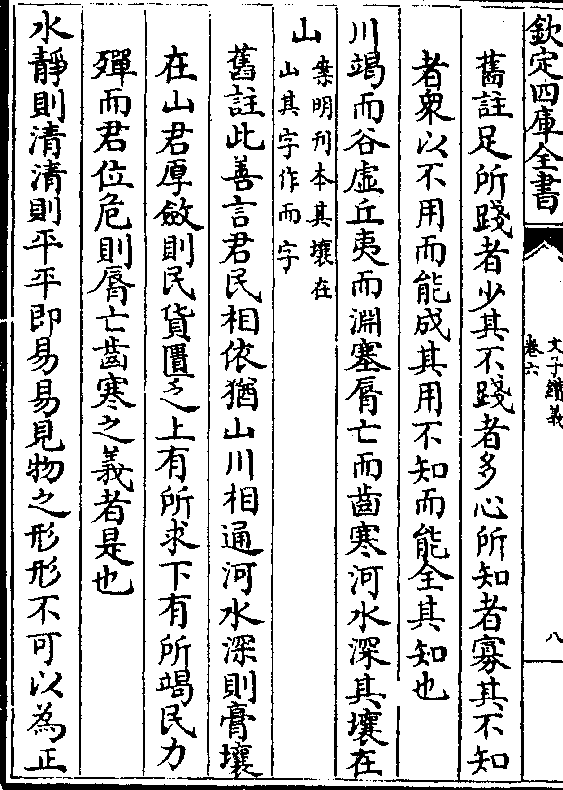 欽定四庫全書
文子纘義
卷六
八
舊註足所踐者少其不踐者多心所知者寡其不知
者衆以不用而能成其用不知而能全其知也
川竭而谷虛丘夷而淵塞脣亡而齒寒河水深其壤在
山案明刊本其壤在
山其字作而字
舊註此善言君民相依猶山川相通河水深則膏壤
在山君厚斂則民貨匱乏上有所求下有所竭民力
殫而君位危則脣亡齒寒之義者是也
水靜則清清則平平即易易見物之形形不可以為正